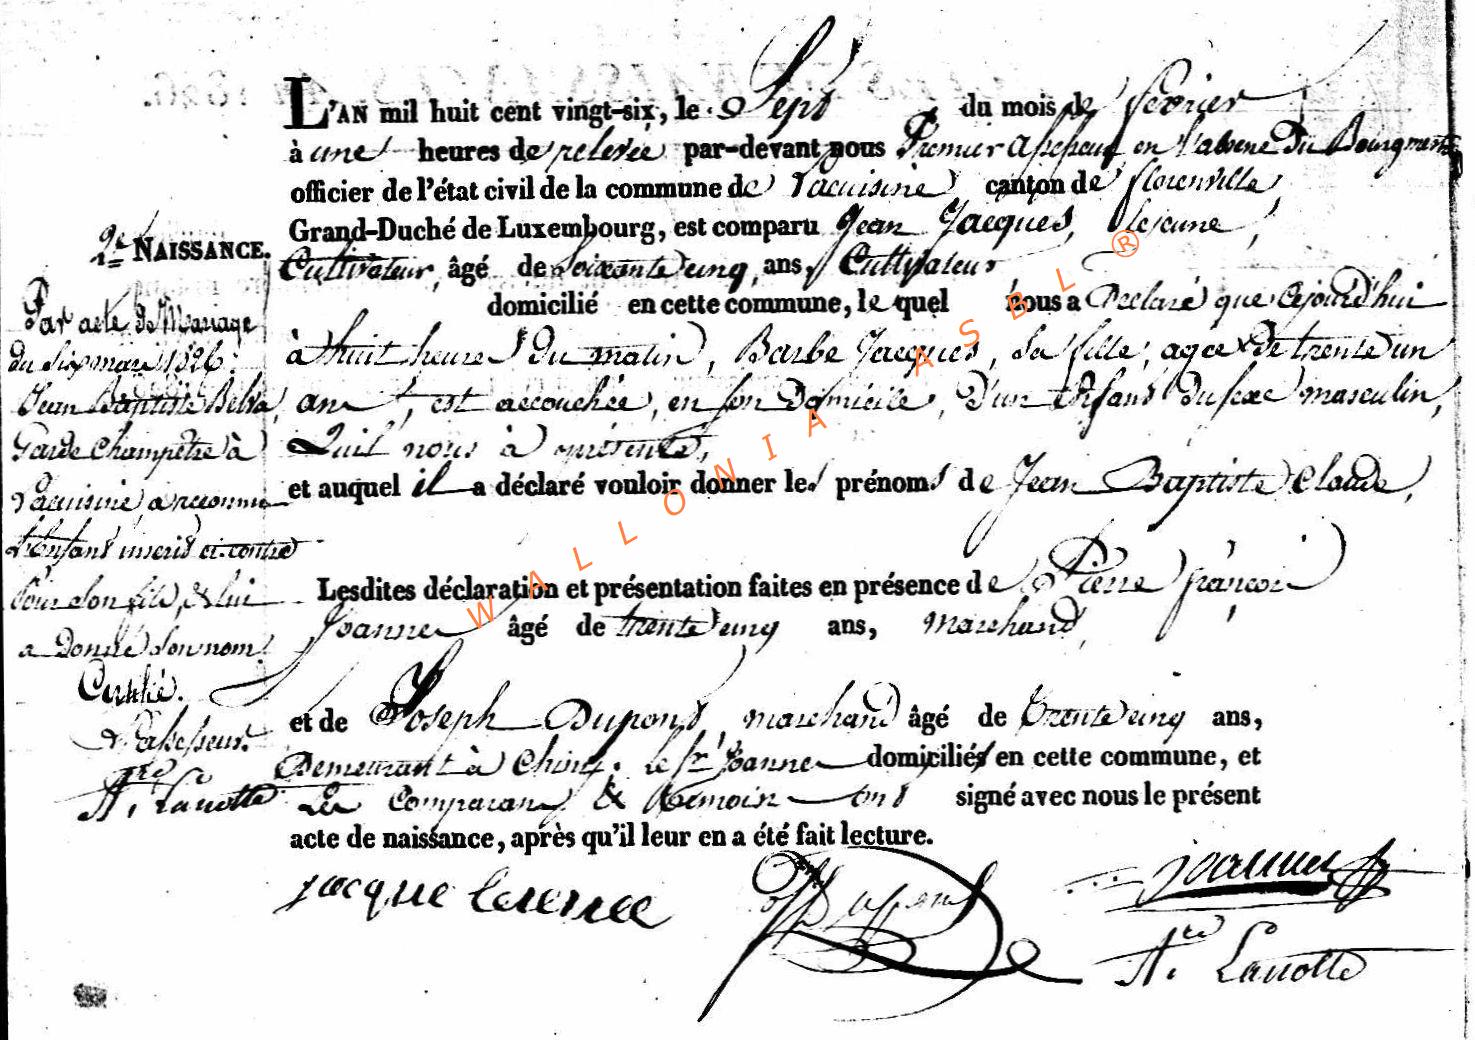 L'AN mil huit cent vingt-six, le Sept du mois de fevrier
à une heures de relevée par-devant nous Premier assesseur en l'absence du Bourgmestre
officier de l'état civil de la commune de Lacuisine canton de florenville,
Grand-Duché de Luxembourg, est comparu Jean Jacques, Lejeune,
Cultivateur, âgé de Soixante cinq, ans, Cultivateur
domicilié en cette commune, le quel nous a Declaré que cejourd'hui
à huit heures du matin, Barbe Jacques, Sa fille, agee de trente un
ans, est accouchée, en son Domicile, D'un Enfant du sexe masculin,
Quil nous à présenté,
et auquel il a déclaré vouloir donner les prénoms de Jean Baptiste Claude,
Lesdites déclaration et présentation faites en présence de Pierre françois
Joannes âgé de trente cinq ans, marchand
et de Joseph Dupont, marchand âgé de trente cinq ans,
Demeurant à Chiny. le Sr Joannes domiciliés en cette commune, et
Les Comparant & temoins ont signé avec nous le présent
acte de naissance, après qu'il leur en a été fait lecture.
2e NAISSANCE.
Par acte de Mariage
du Six mars 1826:
Jean Baptiste Belva,
Garde Champetre à
Lacuisine, a reconnu
l'Enfant inscrit ci-contre
Pour Son fils, & lui
a Donné Son nom.
Certifié.
L'assesseur
Ar. Lanotte
jacque leiene
Dupont
joannes
Ar. Lanotte
WALLONIA ASBL ®